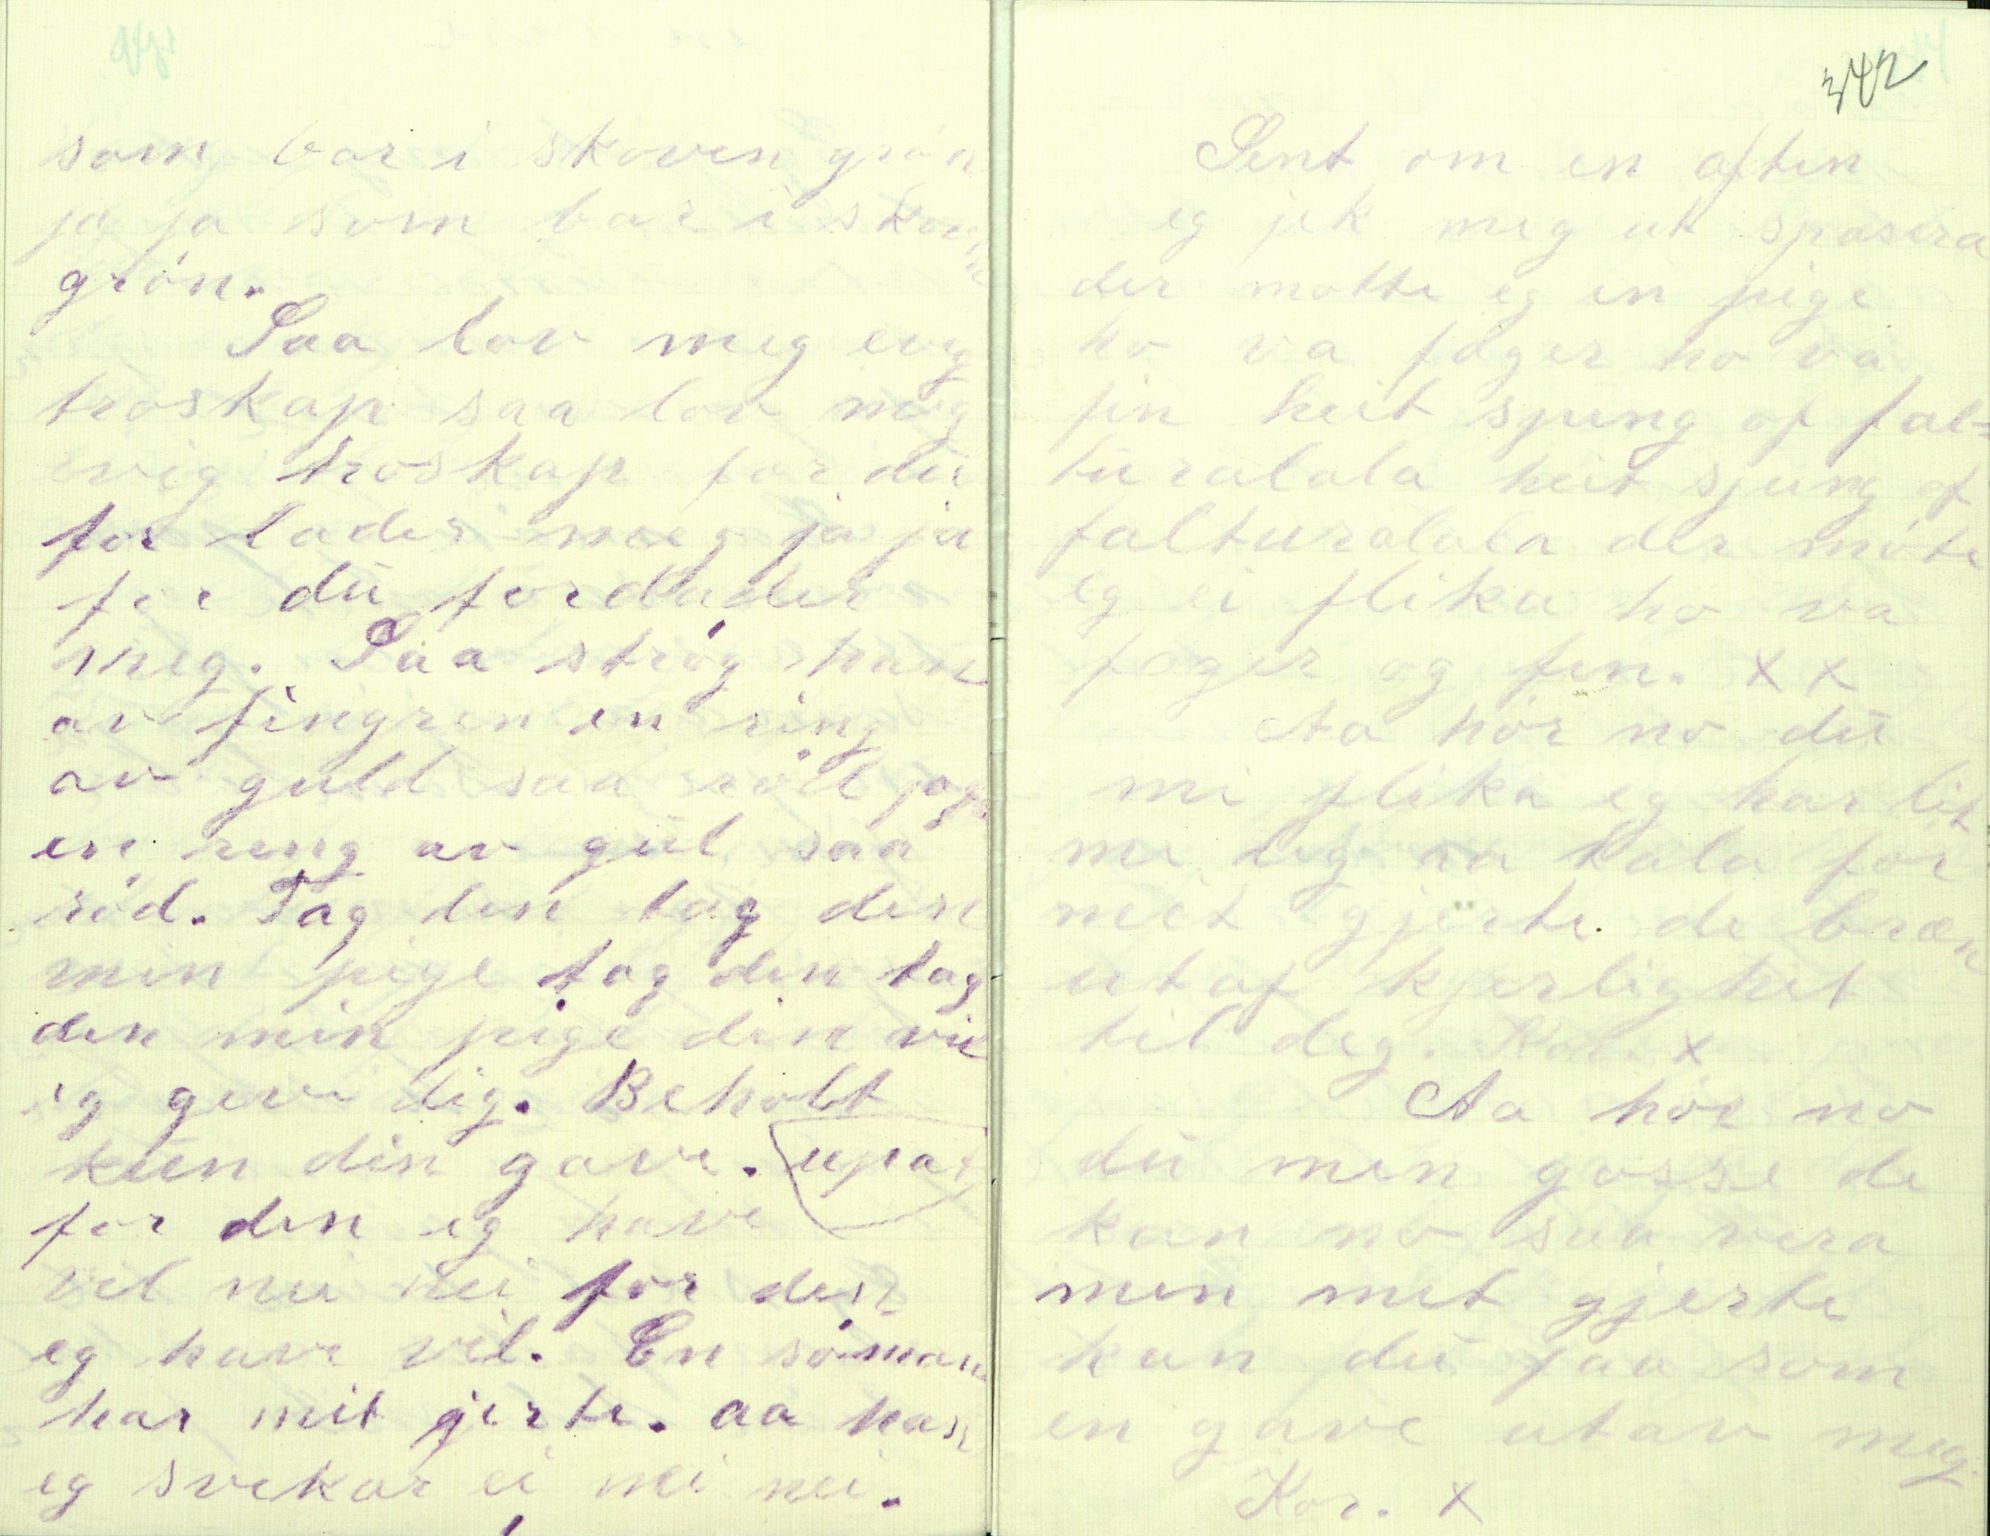 som bar i skoven grón
ja ja som bar i skoven
grón.
Saa lov meg evig
troskap saa lov meg
evig troskap før du
for lader meg ja ja
før du fordlader
meg. Saa stróg han
av fingren en ring
av guld saa ród ja ja
en ring av gul saa
ród. Tag den tag den
min pige tag den tag
den min pige den vil
eg geve dig. Beholt
kun din gave.
for den eg have
vil nei nei for den
eg have vil. En sómann
har mit jerte. aa han
eg svekar ei nei nei.
342
Sent om en aften
eg jek meg ut spasera
der møtte eg en pige
ho va fager ho va
fin heit sjung of fal=
turalala heit sjung of
falturalala der móte
eg ei flika ho va
fager og fin. x x
Aa hór no du
mi flika eg har lit
me deg aa tala for
meit gjerte de bræn
utaf kjerlighet
til deg. Kor. x
Aa hór no
du men gosse de
kan no saa vera
men met gjerte
kan du faa som
en gave utav meg.
Kor. x